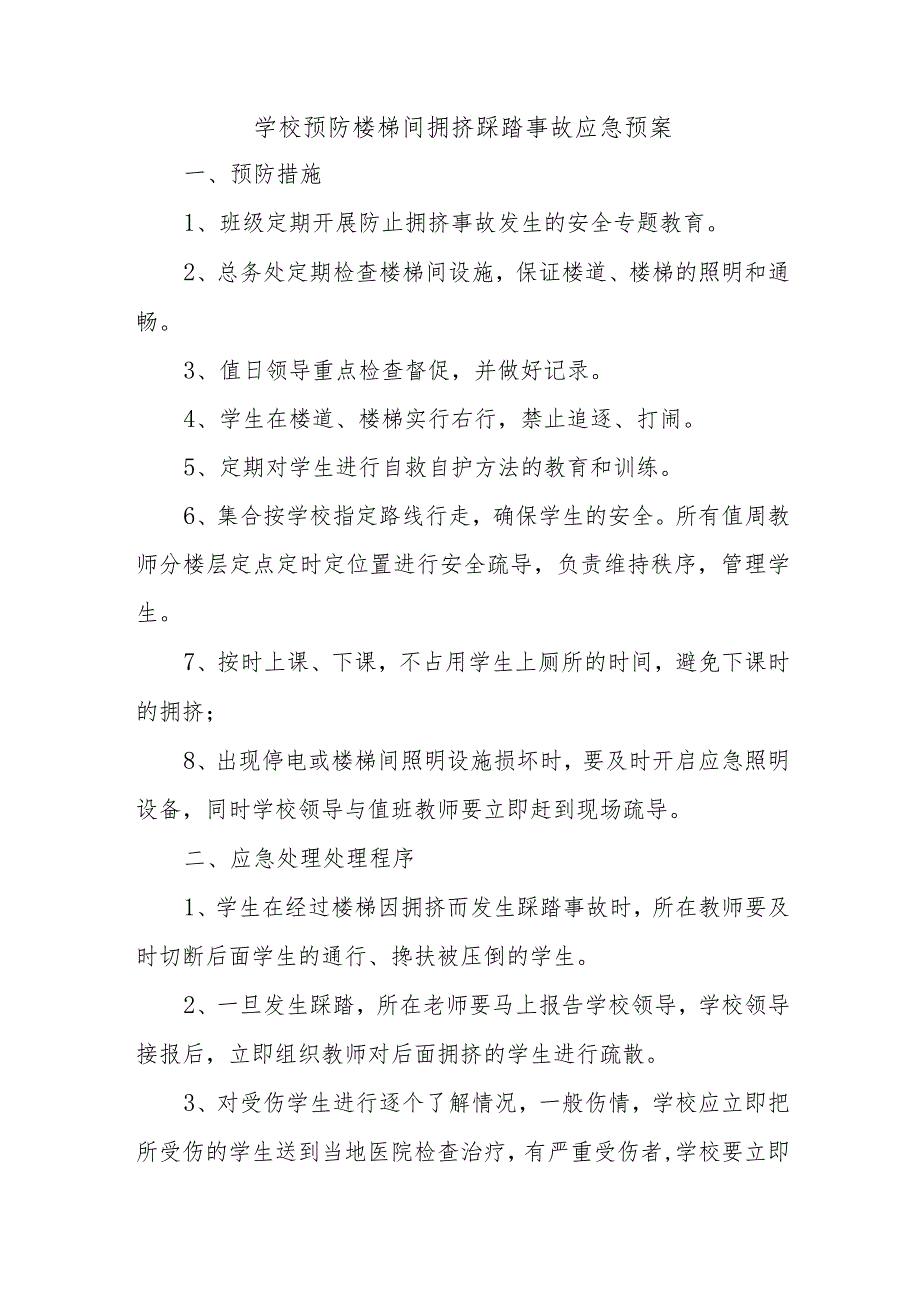 学校预防楼梯间拥挤踩踏事故应急预案
一、预防措施
1、班级定期开展防止拥挤事故发生的安全专题教育。
2、总务处定期检查楼梯间设施，保证楼道、楼梯的照明和通
畅。
3、值日领导重点检查督促，并做好记录。
4、学生在楼道、楼梯实行右行，禁止追逐、打闹。
5、定期对学生进行自救自护方法的教育和训练。
6、集合按学校指定路线行走，确保学生的安全。所有值周教
师分楼层定点定时定位置进行安全疏导，负责维持秩序，管理学
生。
7、按时上课、下课，不占用学生上厕所的时间，避免下课时
的拥挤；
8、出现停电或楼梯间照明设施损坏时，要及时开启应急照明
设备，同时学校领导与值班教师要立即赶到现场疏导。
二、应急处理处理程序
1、学生在经过楼梯因拥挤而发生踩踏事故时，所在教师要及
时切断后面学生的通行、搀扶被压倒的学生。
2、一旦发生踩踏，所在老师要马上报告学校领导，学校领导
接报后，立即组织教师对后面拥挤的学生进行疏散。
3、对受伤学生进行逐个了解情况，一般伤情，学校应立即把
所受伤的学生送到当地医院检查治疗，有严重受伤者,学校要立即